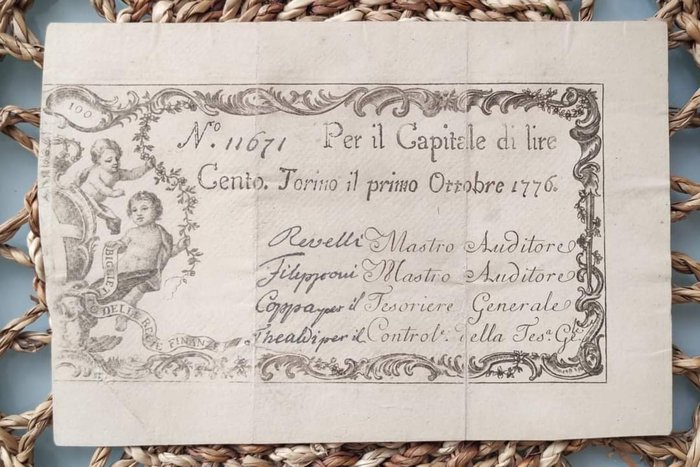 100
N.º 11671 Per il Capitale di lire
Cento. Torino il primo Ottobre 1776.
Revelli Mastro Auditore
Filipponi Mastro Auditore
Coppa per il Tesoriere Generale
per il Control.e della Tes.a G.le
BIGLIE
DELLE REGIE
FINANZE